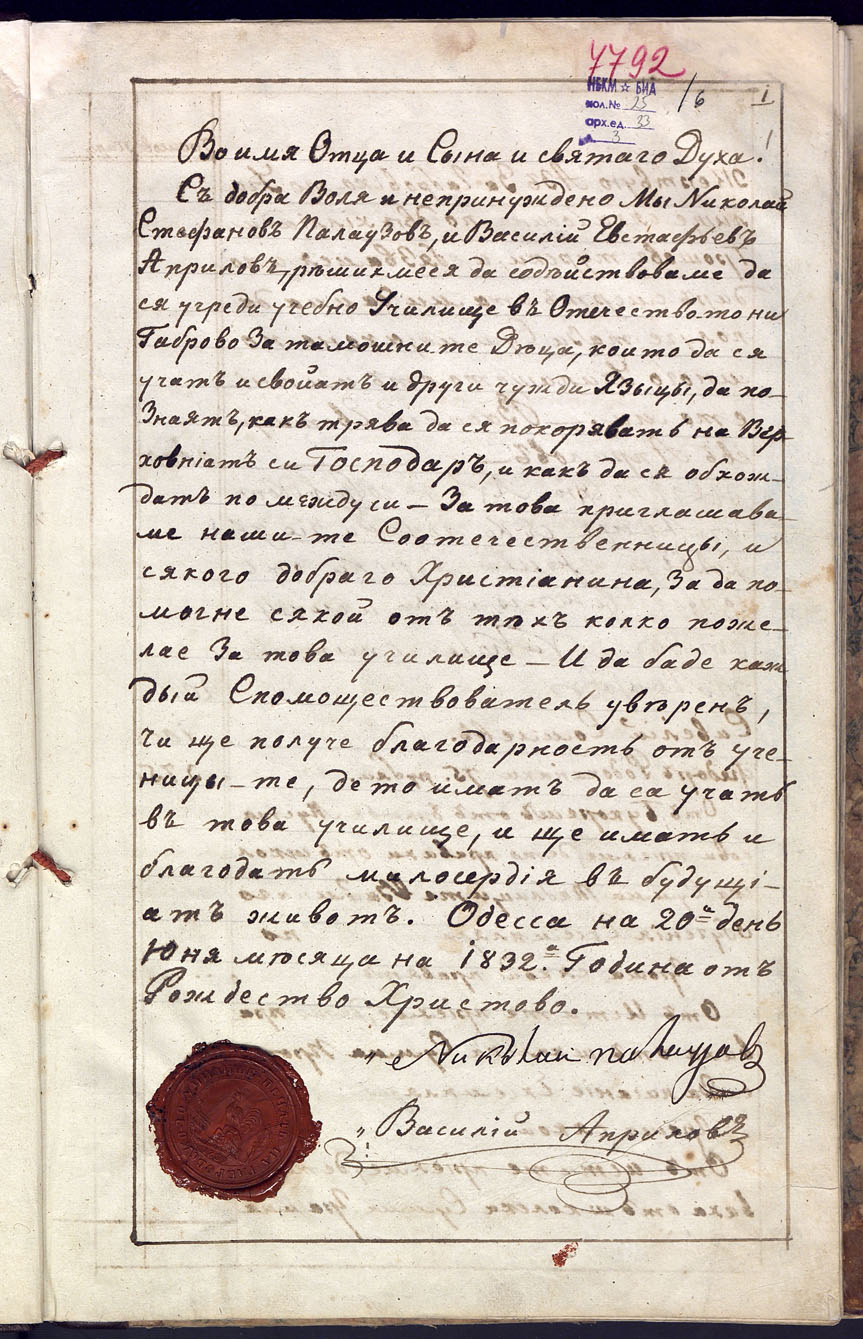 7792
НБКМ ☆ БИА
кол.№ 25
арх.ед. 33
3
1/6
1
Во имя Отца и Сына и святаго Духа!
Съ добра Воля и непринуждено Мы Николай
Стефановъ Палаузовъ, и Василій Евстафьевъ
Априловъ, рѣшихмеся да содѣйствоваме да
ся угреди учебно Училище въ Отечество то ни
Габрово За тамошни те Дѣца, които да ся
учатъ и свойатъ и други чужди Языцы, да по-
Знаятъ, какъ трява да ся покоряватъ на Вер-
ховніатъ си Господаръ, и какъ да ся обхож-
датъ по между си — За това приглашава-
ме наши-те Соотечественницы, и
сякого добраго Христіанина, За да по-
могне сякой отъ тѣхъ колко поже-
лае За това училище — И да баде каж
дый Спомоществователь увѣренъ,
чи ще получе благодарность отъ уче-
ницы-те, дето иматъ да са учатъ
въ това училище, и ще иматъ и
благодать милосердія въ будущі-
атъ животъ. Одесса на 20ᵃ день
Юня мѣсяца на 1832ᵃ. Година отъ
Рождество Христово.
„ Николай палаузов
„ Василій Априловъ